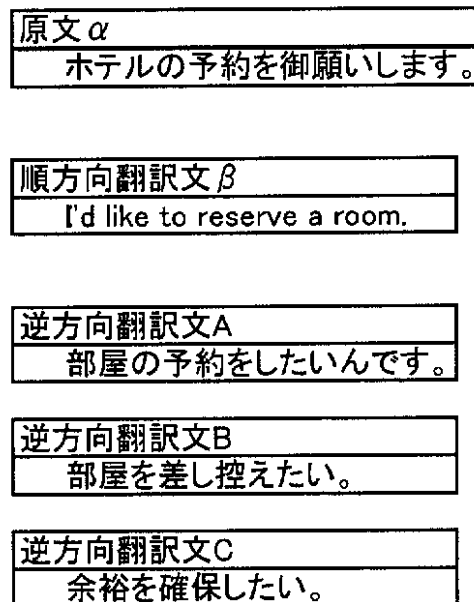 原文α
ホテルの予約を御願いします。
順方向翻訳文β
I'd like to reserve a room.
逆方向翻訳文A
部屋の予約をしたいんです。
逆方向翻訳文B
部屋を差し控えたい。
逆方向翻訳文C
余裕を確保したい。